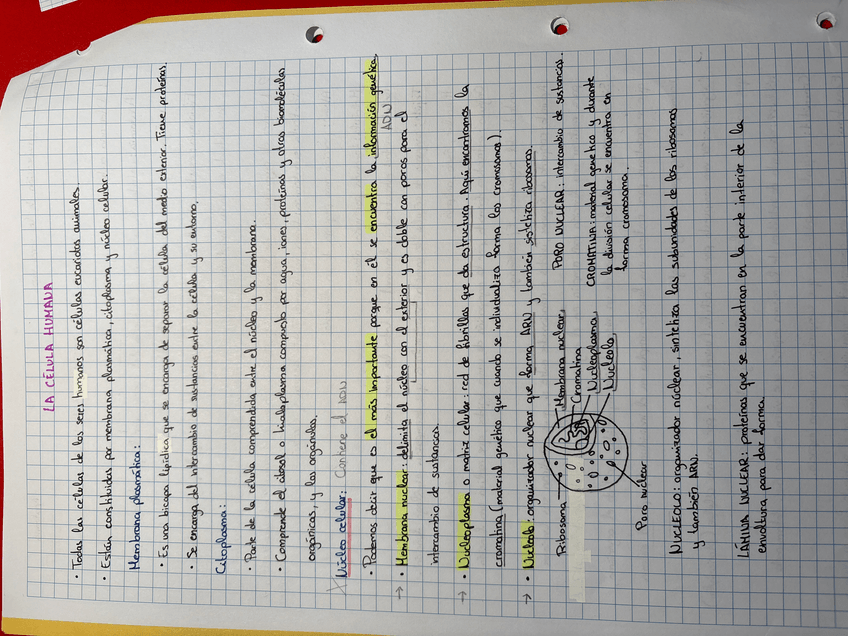 LA CÉLULA HUMANA
· Todas las células de los seres humanos son células eucariotas animales.
· Están constituidas por membrana plasmática, citoplasma y núcleo celular.
Membrana plasmática:
· Es una bicapa lipídica que se encarga de separar la célula del medio exterior. Tiene proteínas.
· Se encarga del intercambio de sustancias entre la célula y su entorno.
Citoplasma:
· Parte de la célula comprendida entre el núcleo y la membrana.
· Comprende el citosol o hialoplasma compuesto por agua, iones, proteínas y otras biomoléculas
orgánicas, y los orgánulos.
Núcleo celular: Contiene el ADN
· Podemos decir que es el más importante porque en él se encuentra la información genética.
ADN
→ · Membrana nuclear: delimita el núcleo con el exterior y es doble con poros para el
intercambio de sustancias.
→ · Nucleoplasma o matriz celular: red de fibrillas que da estructura. Aquí encontramos la
cromatina (material genético que cuando se individualiza forma los cromosomas).
→ · Nucleolo: organizador nuclear que forma ARN y también sistetiza ribosomas.
Ribosoma
Membrana nuclear
Cromatina
Nucleoplasma
Nucleolo
Poro nuclear
PORO NUCLEAR: intercambio de sustancias.
CROMATINA: material genético y durante
la división celular se encuentra en
forma cromosoma.
NUCLEOLO: organizador núclear, sintetiza las subunidades de los ribosomas
y también ARN.
LÁMINA NUCLEAR: proteínas que se encuentran en la parte interior de la
envoltura para dar forma.